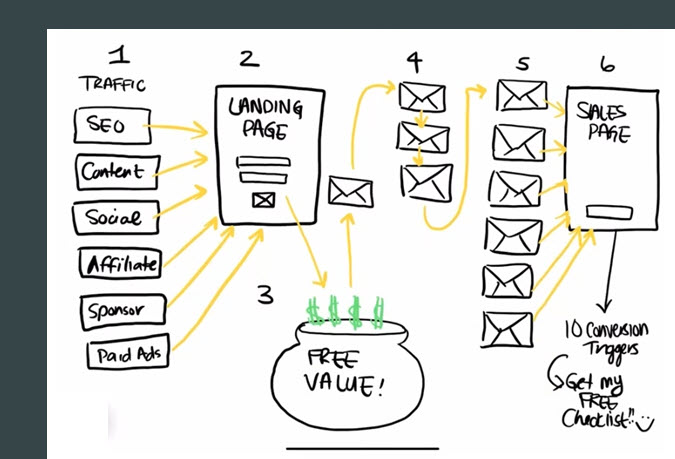 1
TRAFFIC
SEO
Content
Social
Affiliate
Sponsor
Paid Ads
2
LANDING
PAGE
3
$ $ $ $
FREE
VALUE!
4
5
6
SALES
PAGE
10 Conversion
Triggers
Get my
FREE
Checklist!!